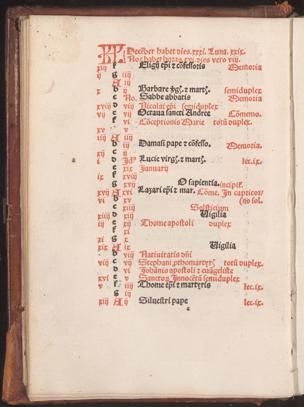 KL December habet dies .xxxi. Luna .xxix.
Nox habet horas .xvi. dies vero viij.
xiij f Eligij epi & cōfessoris Memoria
ij g iiij
x A iij
b Barbare vg. & mart. semiduplex
xviij c No. Sabbe abbatis Memoria
vij d viij Nicolai epi semiduplex
e vij Octaua sancti Andree Cōmemo.
xv f vi Cōceptionis Marie totū duplex
iiij g v
A iiij
xij b iij Damasi pape & cōfesso. Memoria.
i c
d Idꝰ Lucie virg. & mart. lec.ix.
ix e xix Januarij
f xviij
xvij g xvij O sapientia. incipit.
vi A xvi Lazari epi & mar. Cōme. In capricor
b xv no sol.
xiiij c xiiij Solsticium
iij d xiij Uigilia
e xij Thome apostoli duplex
xi f xi
g x
xix A ix Uigilia
viij b viij Natiuitatis dni
c vij Stephani pthomartyris totū duplex
xvi d vi Johānis apostoli & euāgeliste
v e v Sanctorꝫ Innocētū semiduplex
f iiij Thome epi & martyris lec.ix.
xiij g iij
ij A ij Siluestri pape lec.ix.